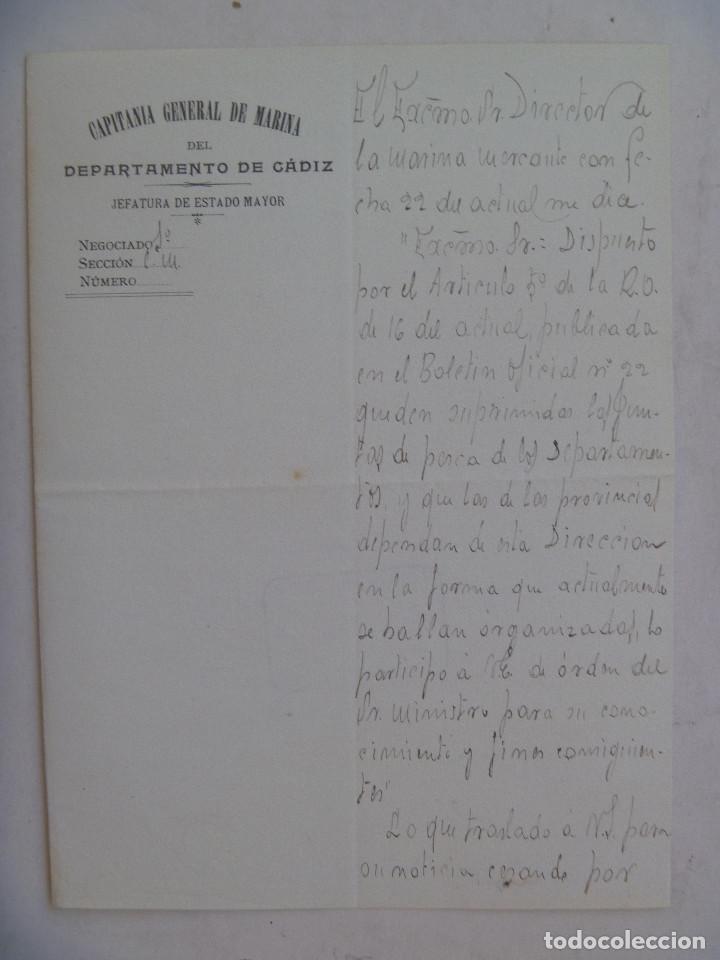 CAPITANIA GENERAL DE MARINA
DEL
DEPARTAMENTO DE CÁDIZ
JEFATURA DE ESTADO MAYOR
NEGOCIADO 1º
SECCIÓN C. M.
NÚMERO
El Excmo. Sr. Director de
la marina mercante con fe-
cha 22 del actual me dice.
"Excmo. Sr.: Dispuesto
por el Artículo 5º de la R.O.
de 16 del actual, publicada
en el Boletin Oficial nº 22
queden suprimidas las Jun-
tas de pesca de los Departamen-
tos, y que las de las provincias
dependan de esta Direccion
en la forma que actualmente
se hallan organizadas, lo
participo á V.E. de órden del
Sr. Ministro para su cono-
cimiento y fines consiguien-
tes"
Lo que traslado á V.S. para
su noticia, cesando por
todocoleccion.net